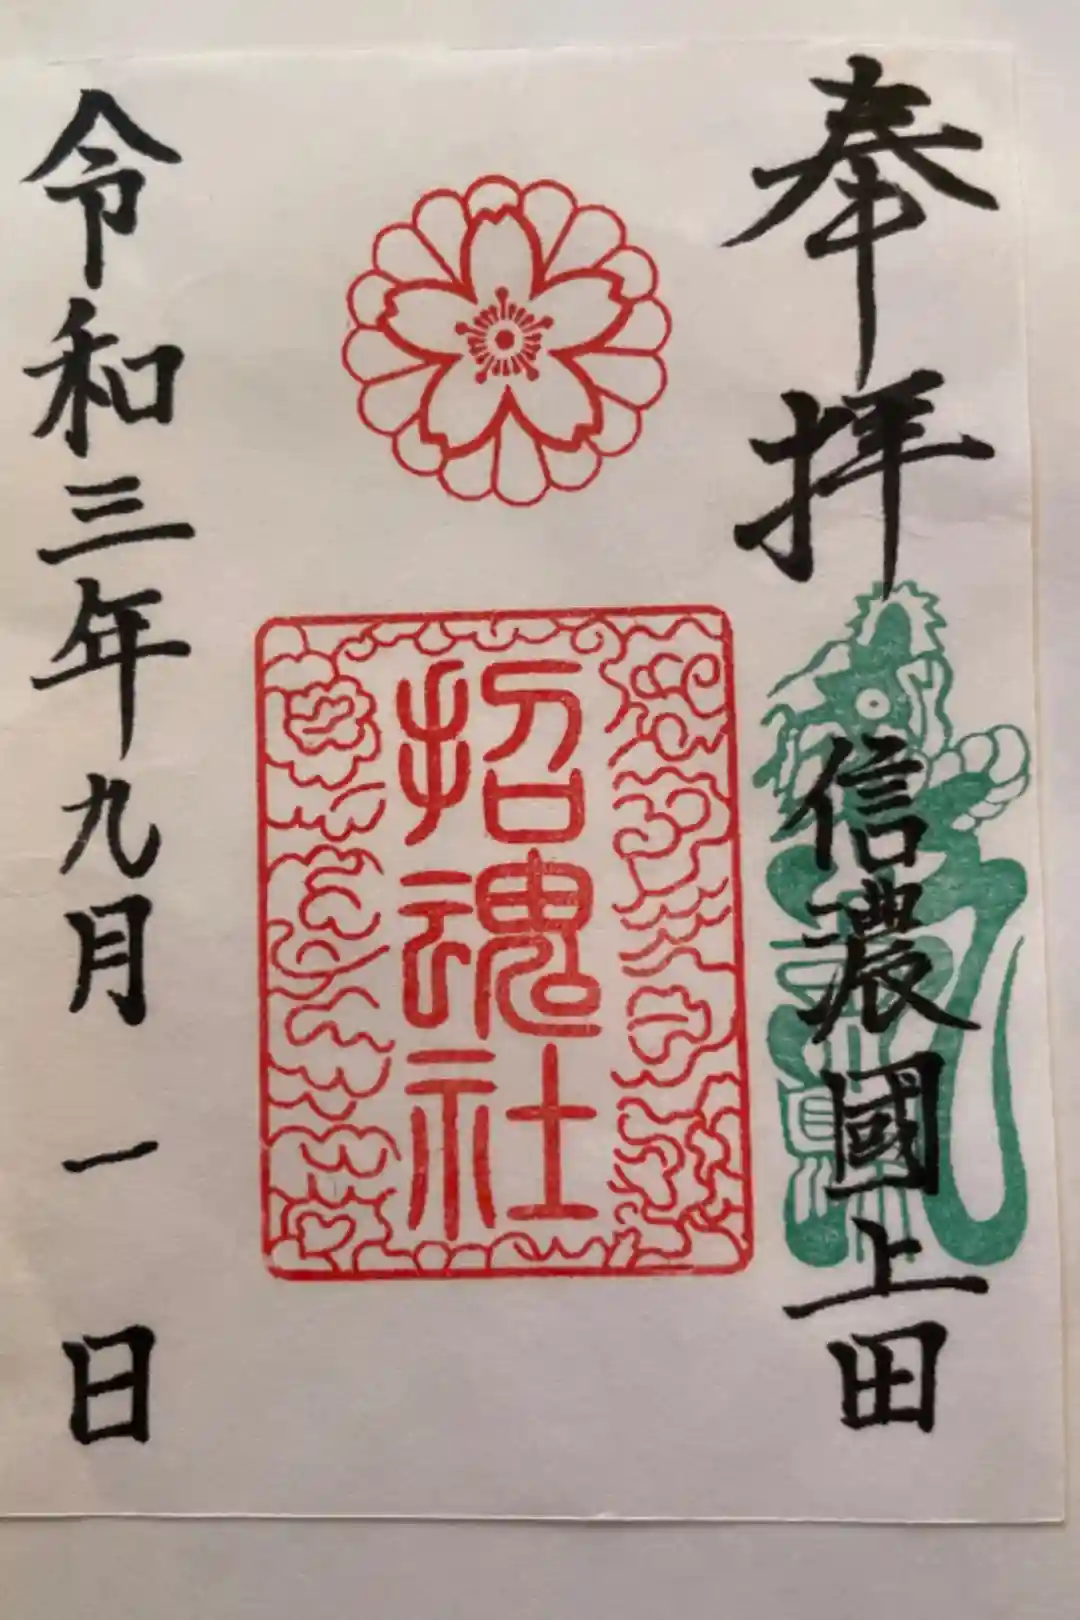 奉拝
信濃國上田
招魂社
令和三年九月一日